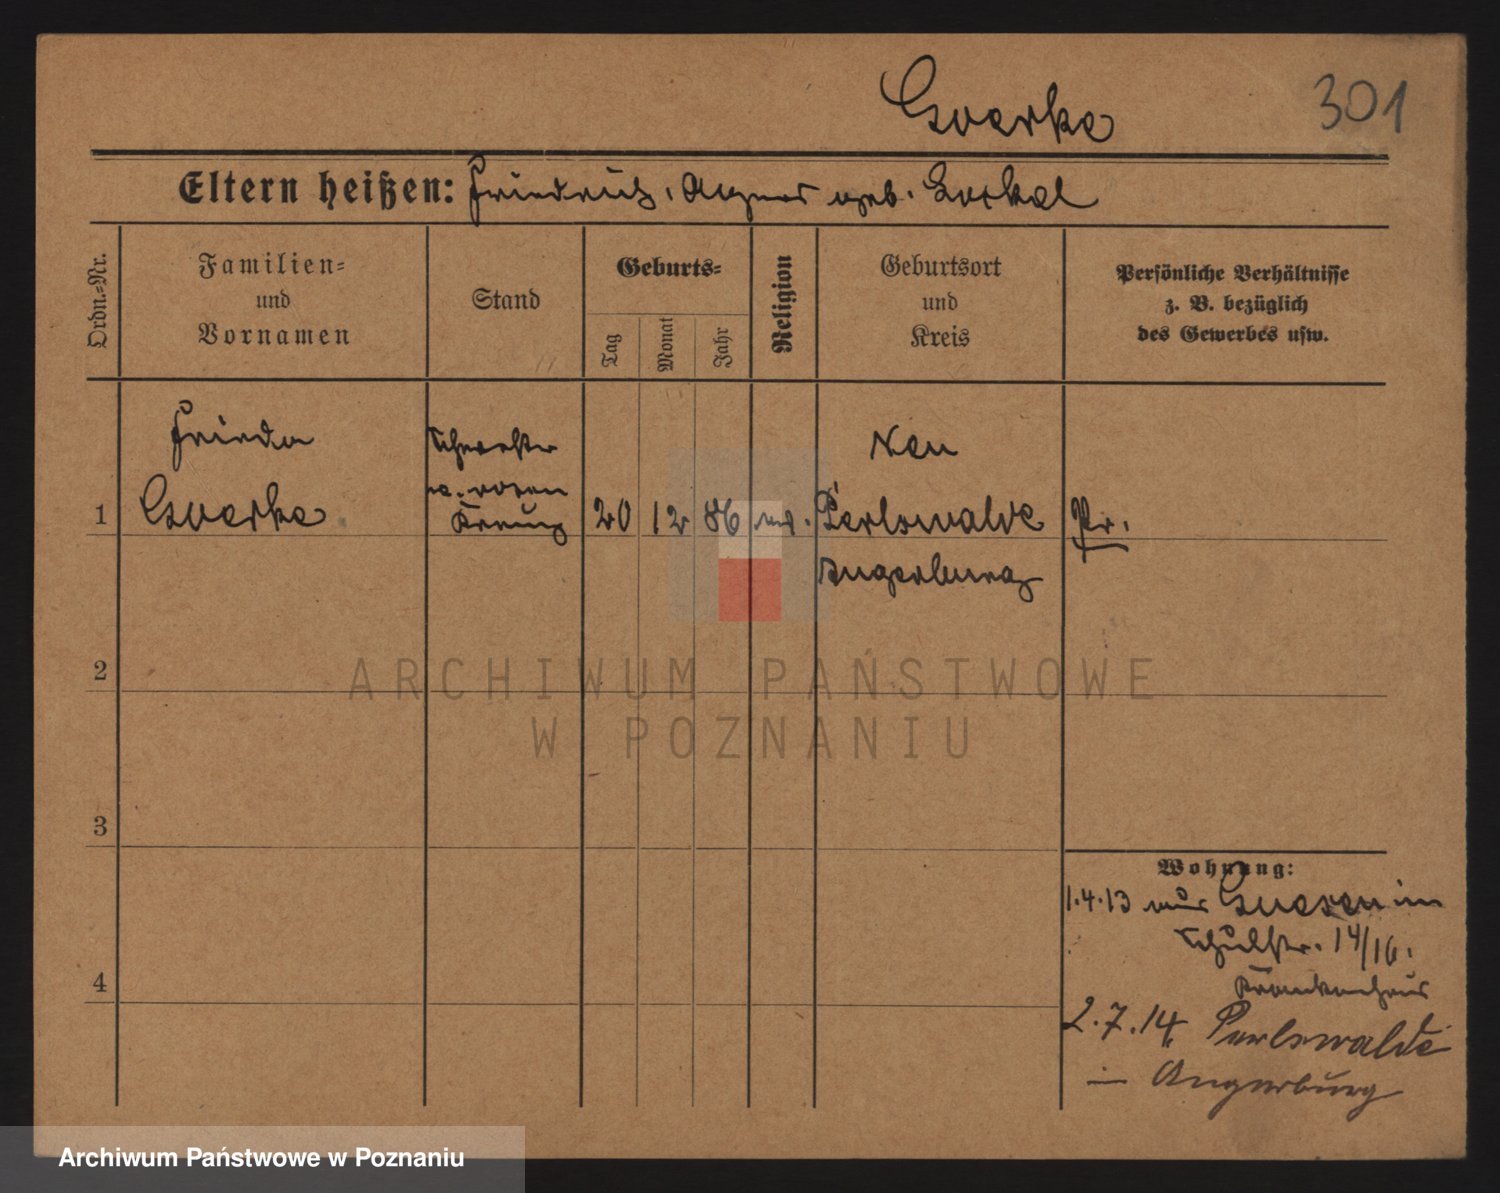 Goerke
301
Eltern heißen: Friedrich, Agnes geb. Gorkal
Ordn.-Nr.
Familien-
und
Vornamen
Stand
Geburts-
Tag
Monat
Jahr
Religion
Geburtsort
und
Kreis
Persönliche Verhältnisse
z. B. bezüglich
des Gewerbes usw.
Frieda
Goerke
Schwester
v. roten
Kreuz
1
20
12
86
ev.
Neu
Perlswalde
Angerburg
Pr.
2
3
4
Wohnung:
1.4.13 aus Gnesen im
Schulstr. 14/16.
Krankenhaus
2.7.14 Perlswalde
in Angerburg
ARCHIWUM PAŃSTWOWE
W POZNANIU
Archiwum Państwowe w Poznaniu